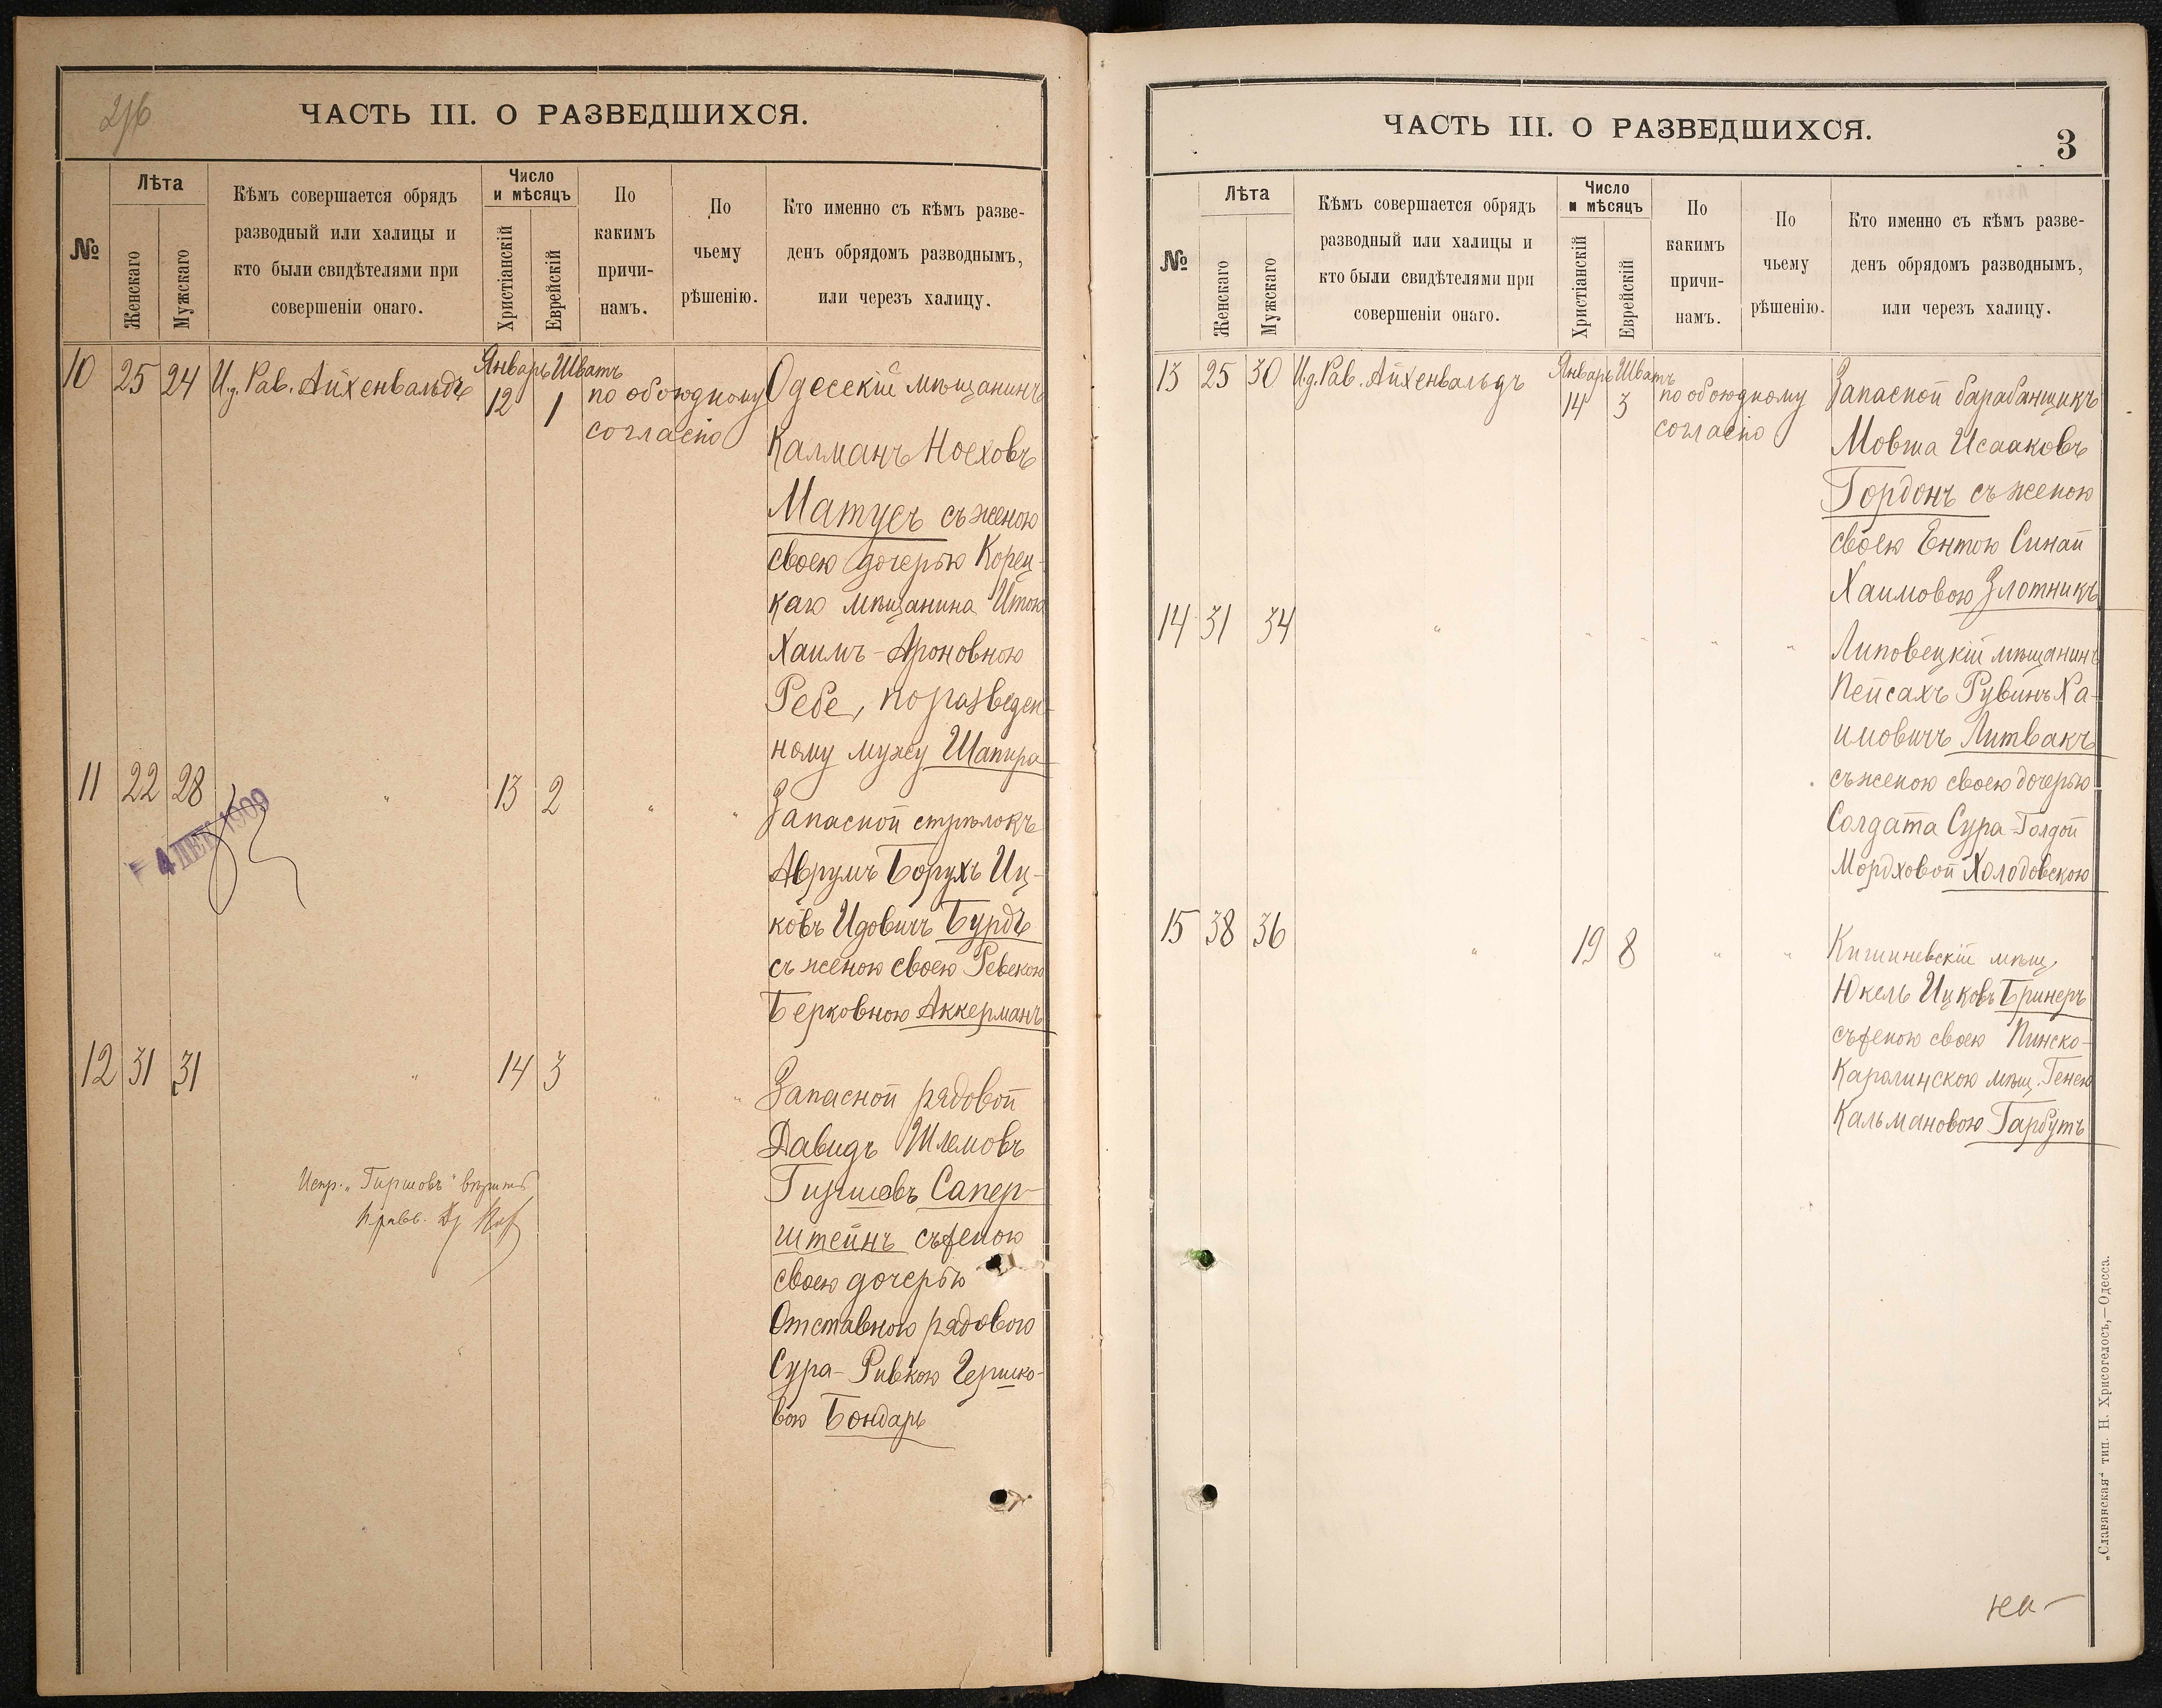 2/6
ЧАСТЬ III. О РАЗВЕДШИХСЯ.
№
Лѣта
Женскаго
Мужскаго
Кѣмъ совершается обрядъ
разводный или халицы и
кто были свидѣтелями при
совершеніи онаго.
Число
и мѣсяцъ
Христіанскій
Еврейскій
По
какимъ
причи-
намъ.
По
чьему
рѣшенію.
Кто именно съ кѣмъ разве-
денъ обрядомъ разводнымъ,
или черезъ халицу.
10 25 24 И.д. Рав. Айхенвальдъ Январь 12 Шватъ 1 по обоюдному
согласію
Одесскій мѣщанинъ
Калманъ Ноеховъ
Матусъ съ женою
своею дочерью Корец-
каго мѣщанина Итою
Хаимъ-Ароновною
Ребе, по разведен-
ному мужу Шапира
11 22 28 " 13 2 " "
4 ДЕК 1909
Запасной стрѣлокъ
Аврумъ Борухъ Иц-
ковъ Идовичъ Бурдъ
съ женою своею Ревекою
Берковною Аккерманъ
12 31 31 " 14 3 " "
Запасной рядовой
Давидъ Шлемовъ
Гиршовъ Сапер-
штейнъ съ женою
своею дочерью
Отставного рядового
Сура-Ривкою Гершко-
вою Бондарь
Испр. "Гиршовъ" вѣрить
ЧАСТЬ III. О РАЗВЕДШИХСЯ.
3
№
Лѣта
Женскаго
Мужскаго
Кѣмъ совершается обрядъ
разводный или халицы и
кто были свидѣтелями при
совершеніи онаго.
Число
и мѣсяцъ
Христіанскій
Еврейскій
По
какимъ
причи-
намъ.
По
чьему
рѣшенію.
Кто именно съ кѣмъ разве-
денъ обрядомъ разводнымъ,
или черезъ халицу.
13 25 30 И.д. Рав. Айхенвальдъ Январь 14 Шватъ 3 по обоюдному
согласію
Запасной барабанщикъ
Мовша Исааковъ
Гордонъ съ женою
своею Ентою Синай
Хаимовою Злотникъ
14 31 34 " " " " "
Липовецкій мѣщанинъ
Пейсахъ Рувинъ Ха-
имовичъ Литвакъ
съ женою своею дочерью
Солдата Сура-Голдой
Мордховой Холодовскою
15 38 36 " 19 8 " "
Кишиневскій мѣщ.
Юкель Ицковъ Бринеръ
съ женою своею Пинско-
Каролинскою мѣщ. Генею
Кальмановою Гарбутъ
на-
„Славянская“ тип. Н. Хрисогелосъ,—Одесса.